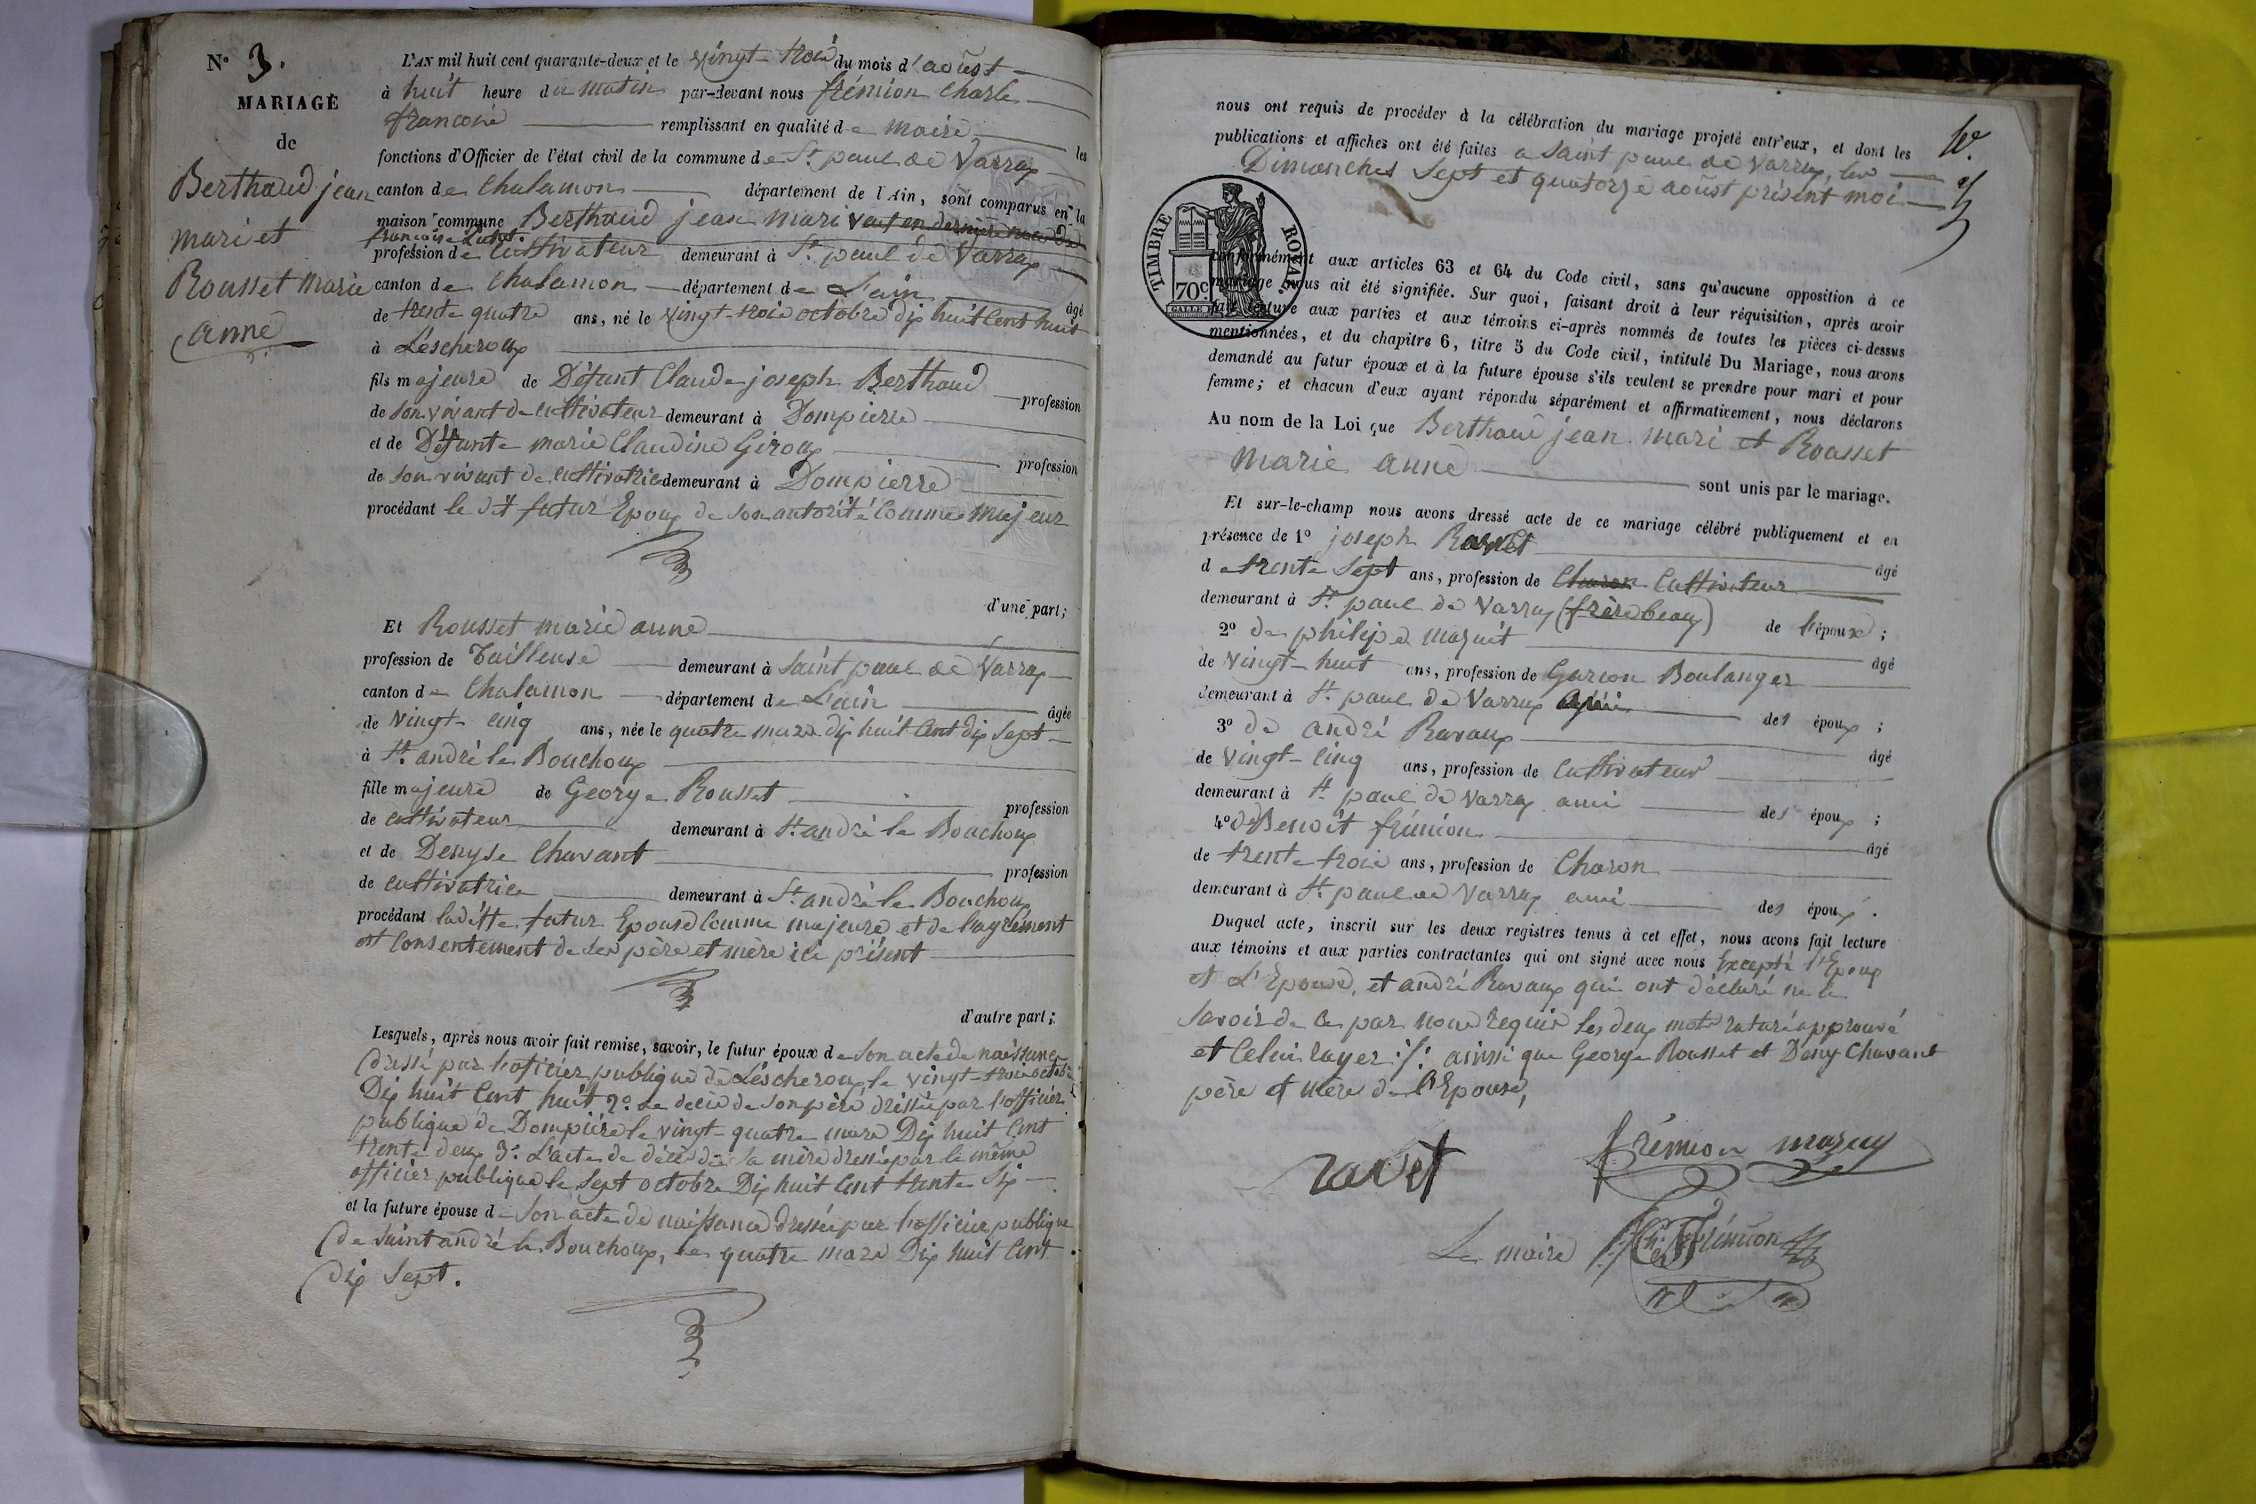 N° 3.
MARIAGE
de
Berthaud jean
mari et
Rousset marie
anne
L'AN mil huit cent quarante-deux et le vingt-trois du mois d'août
à huit heure du matin par-devant nous frémion Charle
francois remplissant en qualité de maire les
fonctions d'Officier de l'état civil de la commune de St. paul de Varrax
canton de Chalamon département de l'Ain, sont comparus en la
maison commune Berthaud jean mari veuf en dernière noce de
francoise
profession de Cultivateur demeurant à St. paul de Varrax
canton de Chalamon département de Lain âgé
de trente quatre ans, né le vingt-trois octobre dix huit Cent huit
à Léscheroux
fils majeure de Défunt Claude joseph Berthaud profession
de son vivant de cultivateur demeurant à Dompierre
et de Défunte marie Claudine Giroux profession
de son vivant de cultivatrice demeurant à Dompierre
procédant le dit futur Epoux de son autorité Comme majeur
d'une part;
Et Rousset marie anne
profession de Tailleuse demeurant à Saint paul de Varrax
canton de Chalamon département de L'ain âgée
de vingt-cinq ans, née le quatre mars dix huit Cent dix Sept
à St. andré le Bouchoux
fille majeure de George Rousset profession
de cultivateur demeurant à St. andré le Bouchoux
et de Denyse Chavant profession
de cultivatrice demeurant à St. andré le Bouchoux
procédant laditte futur Epouse Comme majeure et de l'agrément
et Consentement de ses père et mère ici présent
d'autre part;
Lesquels, après nous avoir fait remise, savoir, le futur époux de Son acte de naissance
dressé par l'officier publique de Léscheroux le vingt-trois octobre
Dix huit Cent huit 2°. Le décè de Son père dressé par l'officier
publique de Dompière le vingt-quatre mars Dix huit Cent
trente deux 3°. L'acte de décè de Sa mère dressé par le même
officier publique le Sept octobre Dix huit Cent trente Six
et la future épouse de Son acte de naissance dressée par l'officier publique
de Saint andré le Bouchoux, le quatre mars Dix huit Cent
dix Sept.
nous ont requis de procéder à la célébration du mariage projeté entr'eux, et dont les
publications et affiches ont été faites a Saint paul de Varrax, les
Dimanches Sept et quatorze août présent moi
TIMBRE ROYAL
70c
conformément aux articles 63 et 64 du Code civil, sans qu'aucune opposition à ce
mariage nous ait été signifiée. Sur quoi, faisant droit à leur réquisition, après avoir
fait lecture aux parties et aux témoins ci-après nommés de toutes les pièces ci-dessus
mentionnées, et du chapitre 6, titre 5 du Code civil, intitulé Du Mariage, nous avons
demandé au futur époux et à la future épouse s'ils veulent se prendre pour mari et pour
femme; et chacun d'eux ayant répondu séparément et affirmativement, nous déclarons
Au nom de la Loi que Berthaud jean mari et Rousset
marie anne sont unis par le mariage.
Et sur-le-champ nous avons dressé acte de ce mariage célébré publiquement et en
présence de 1° joseph Ravet âgé
de trente Sept ans, profession de Charon Cultivateur
demeurant à St. paul de Varrax (frère beau) de l'époux;
2° de philipe mazuit âgé
de vingt-huit ans, profession de Garson Boulanger
demeurant à St. paul de Varrax ami des époux;
3° de andré Ravaux âgé
de vingt-cinq ans, profession de Cultivateur
demeurant à St. paul de Varrax ami des époux;
4° de Benoit frémion âgé
de trente-trois ans, profession de Charon
demeurant à St. paul de Varrax ami des époux.
Duquel acte, inscrit sur les deux registres tenus à cet effet, nous avons fait lecture
aux témoins et aux parties contractantes qui ont signé avec nous Excepté l'Epoux
et L'Epouse, et andré Ravaux qui ont déclaré ne le
Savoir de ce par nous requis les deux mots raturé approuvé
et Celui rayer ainsi que George Rousset et Deny Chavant
père et mère de l'Epouse,
ravet
frémion mazuy
Le maire Ch. F. Frémion